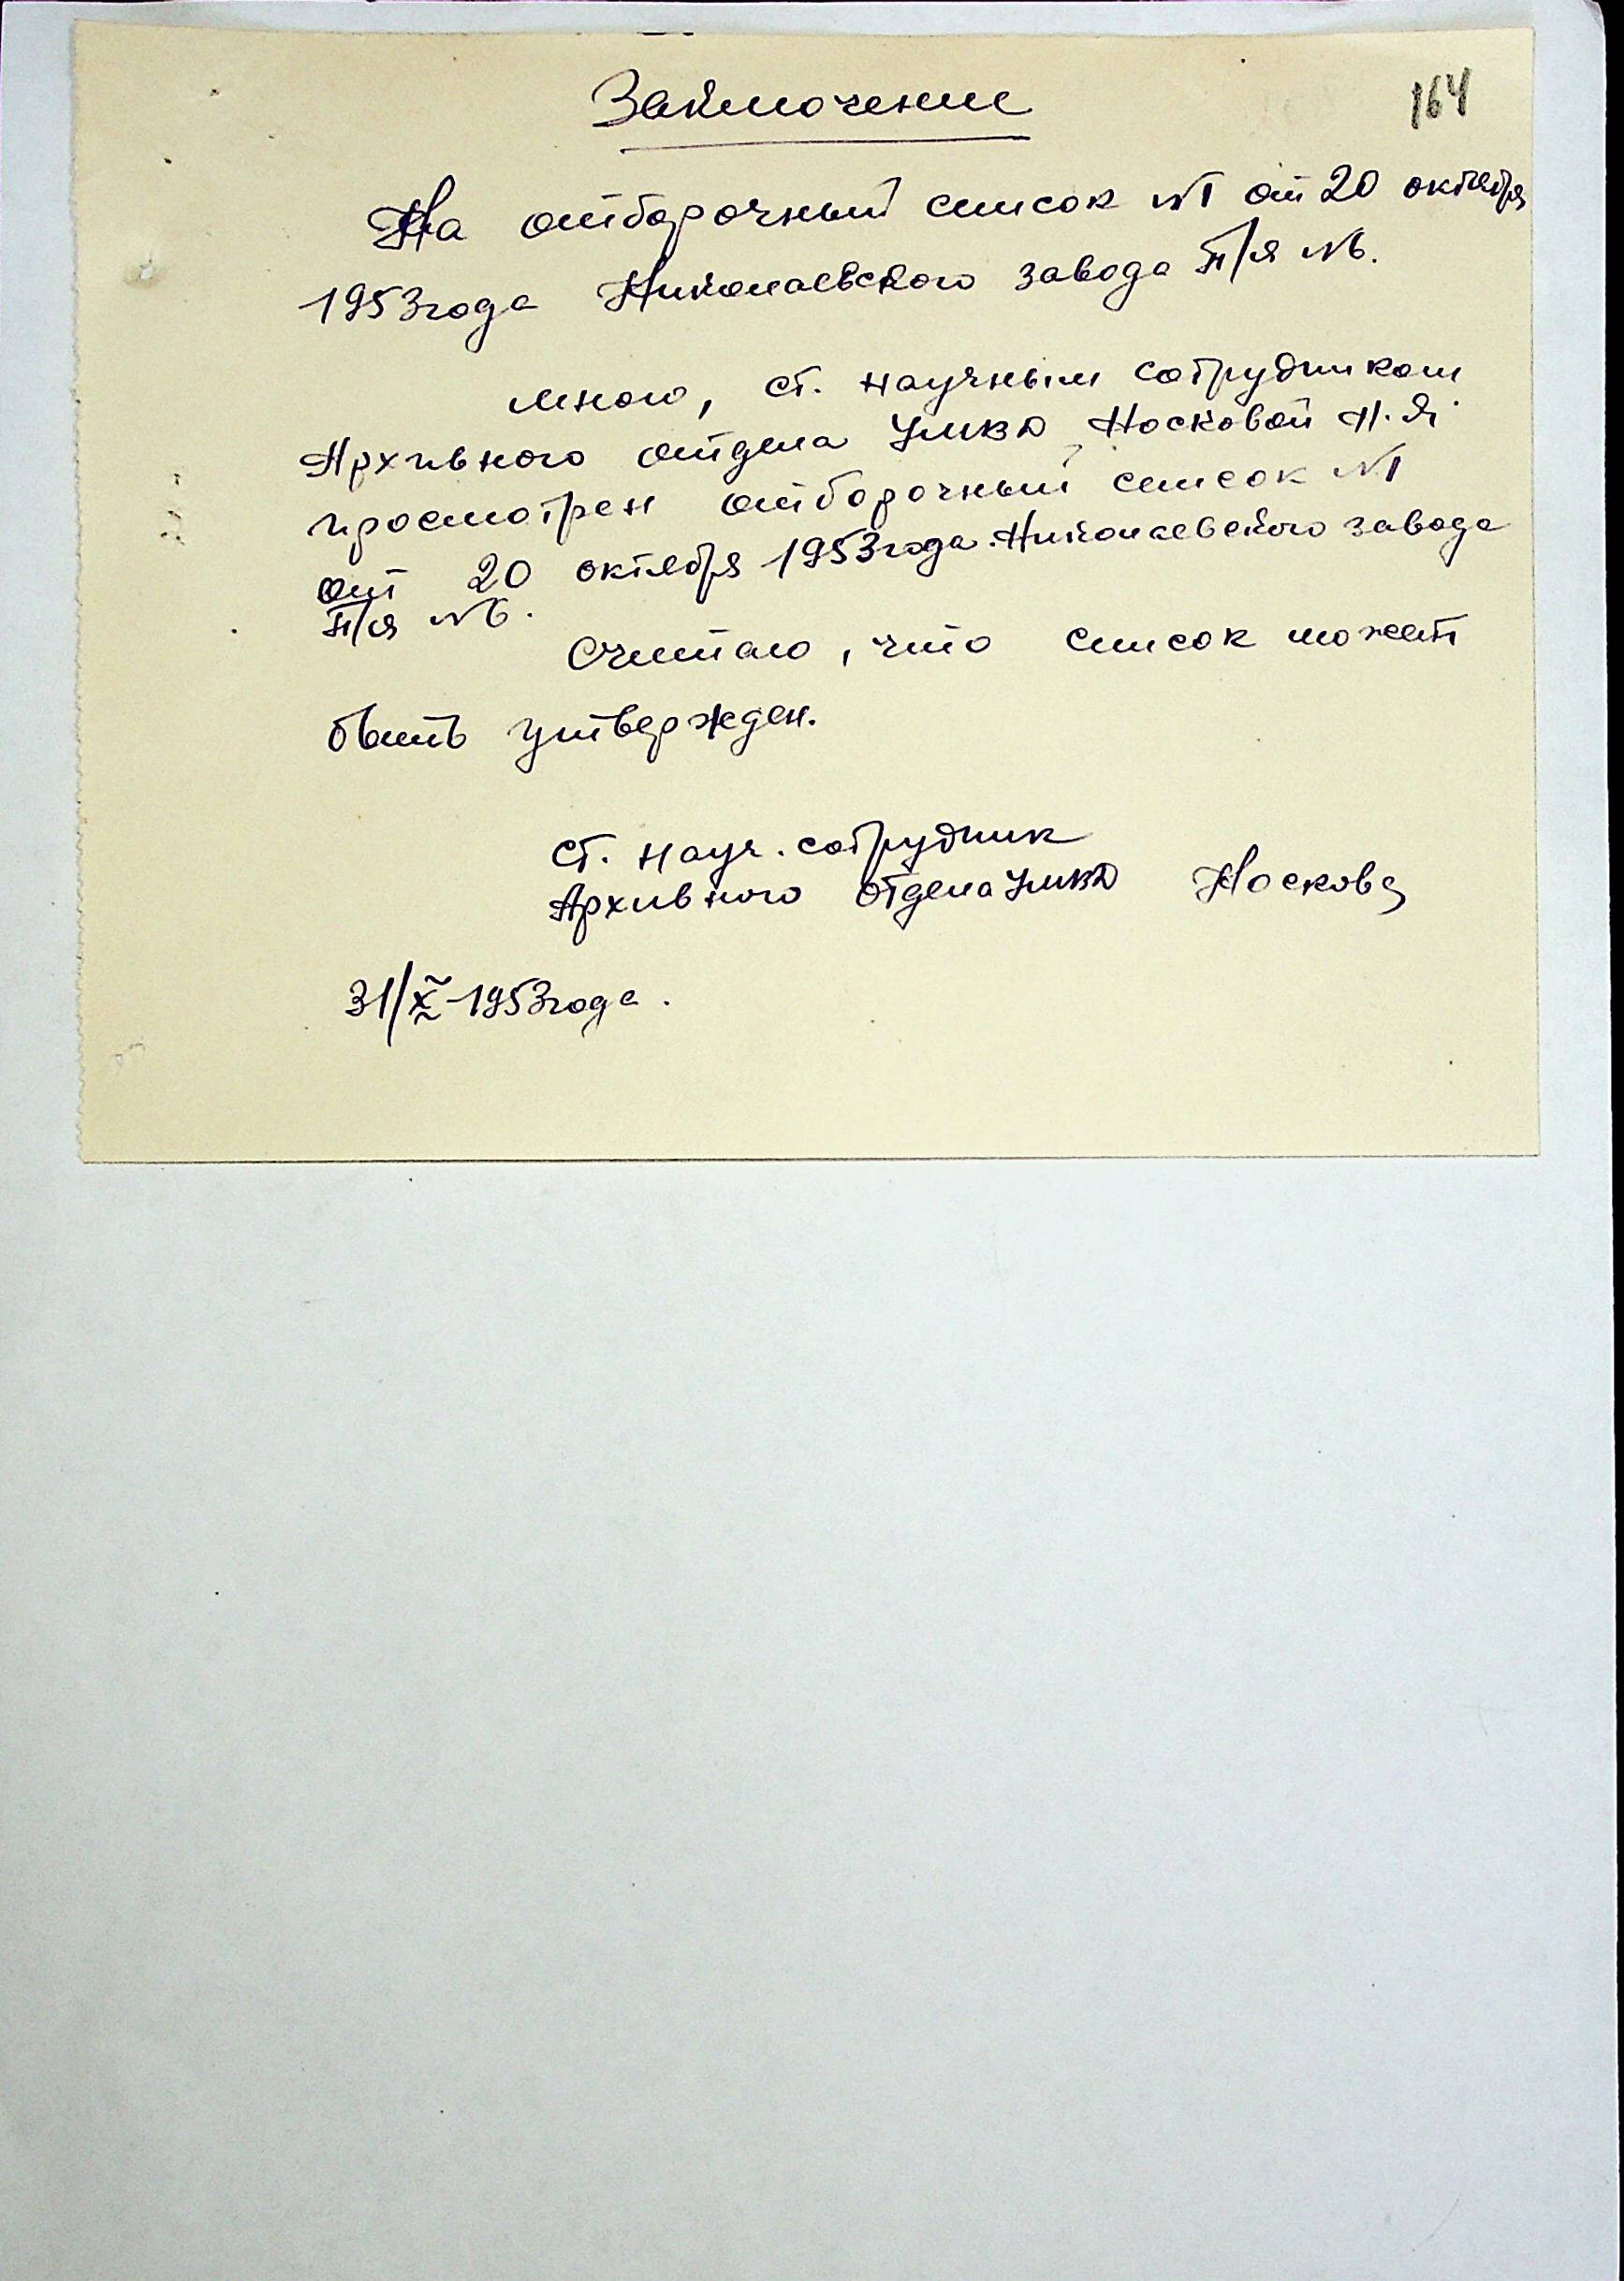 164
Заключение
На отборочный список №1 от 20 октября
1953 года Николаевского завода П/я №6.
мною, ст. научным сотрудником
Архивного отдела УМВД Носковой Н.Я.
просмотрен отборочный список №1
от 20 октября 1953 года. Николаевского завода
П/я №6.
Считаю, что список может
быть утвержден.
Ст. науч. сотрудник
Архивного отдела УМВД Носкова
31/X-1953 года.